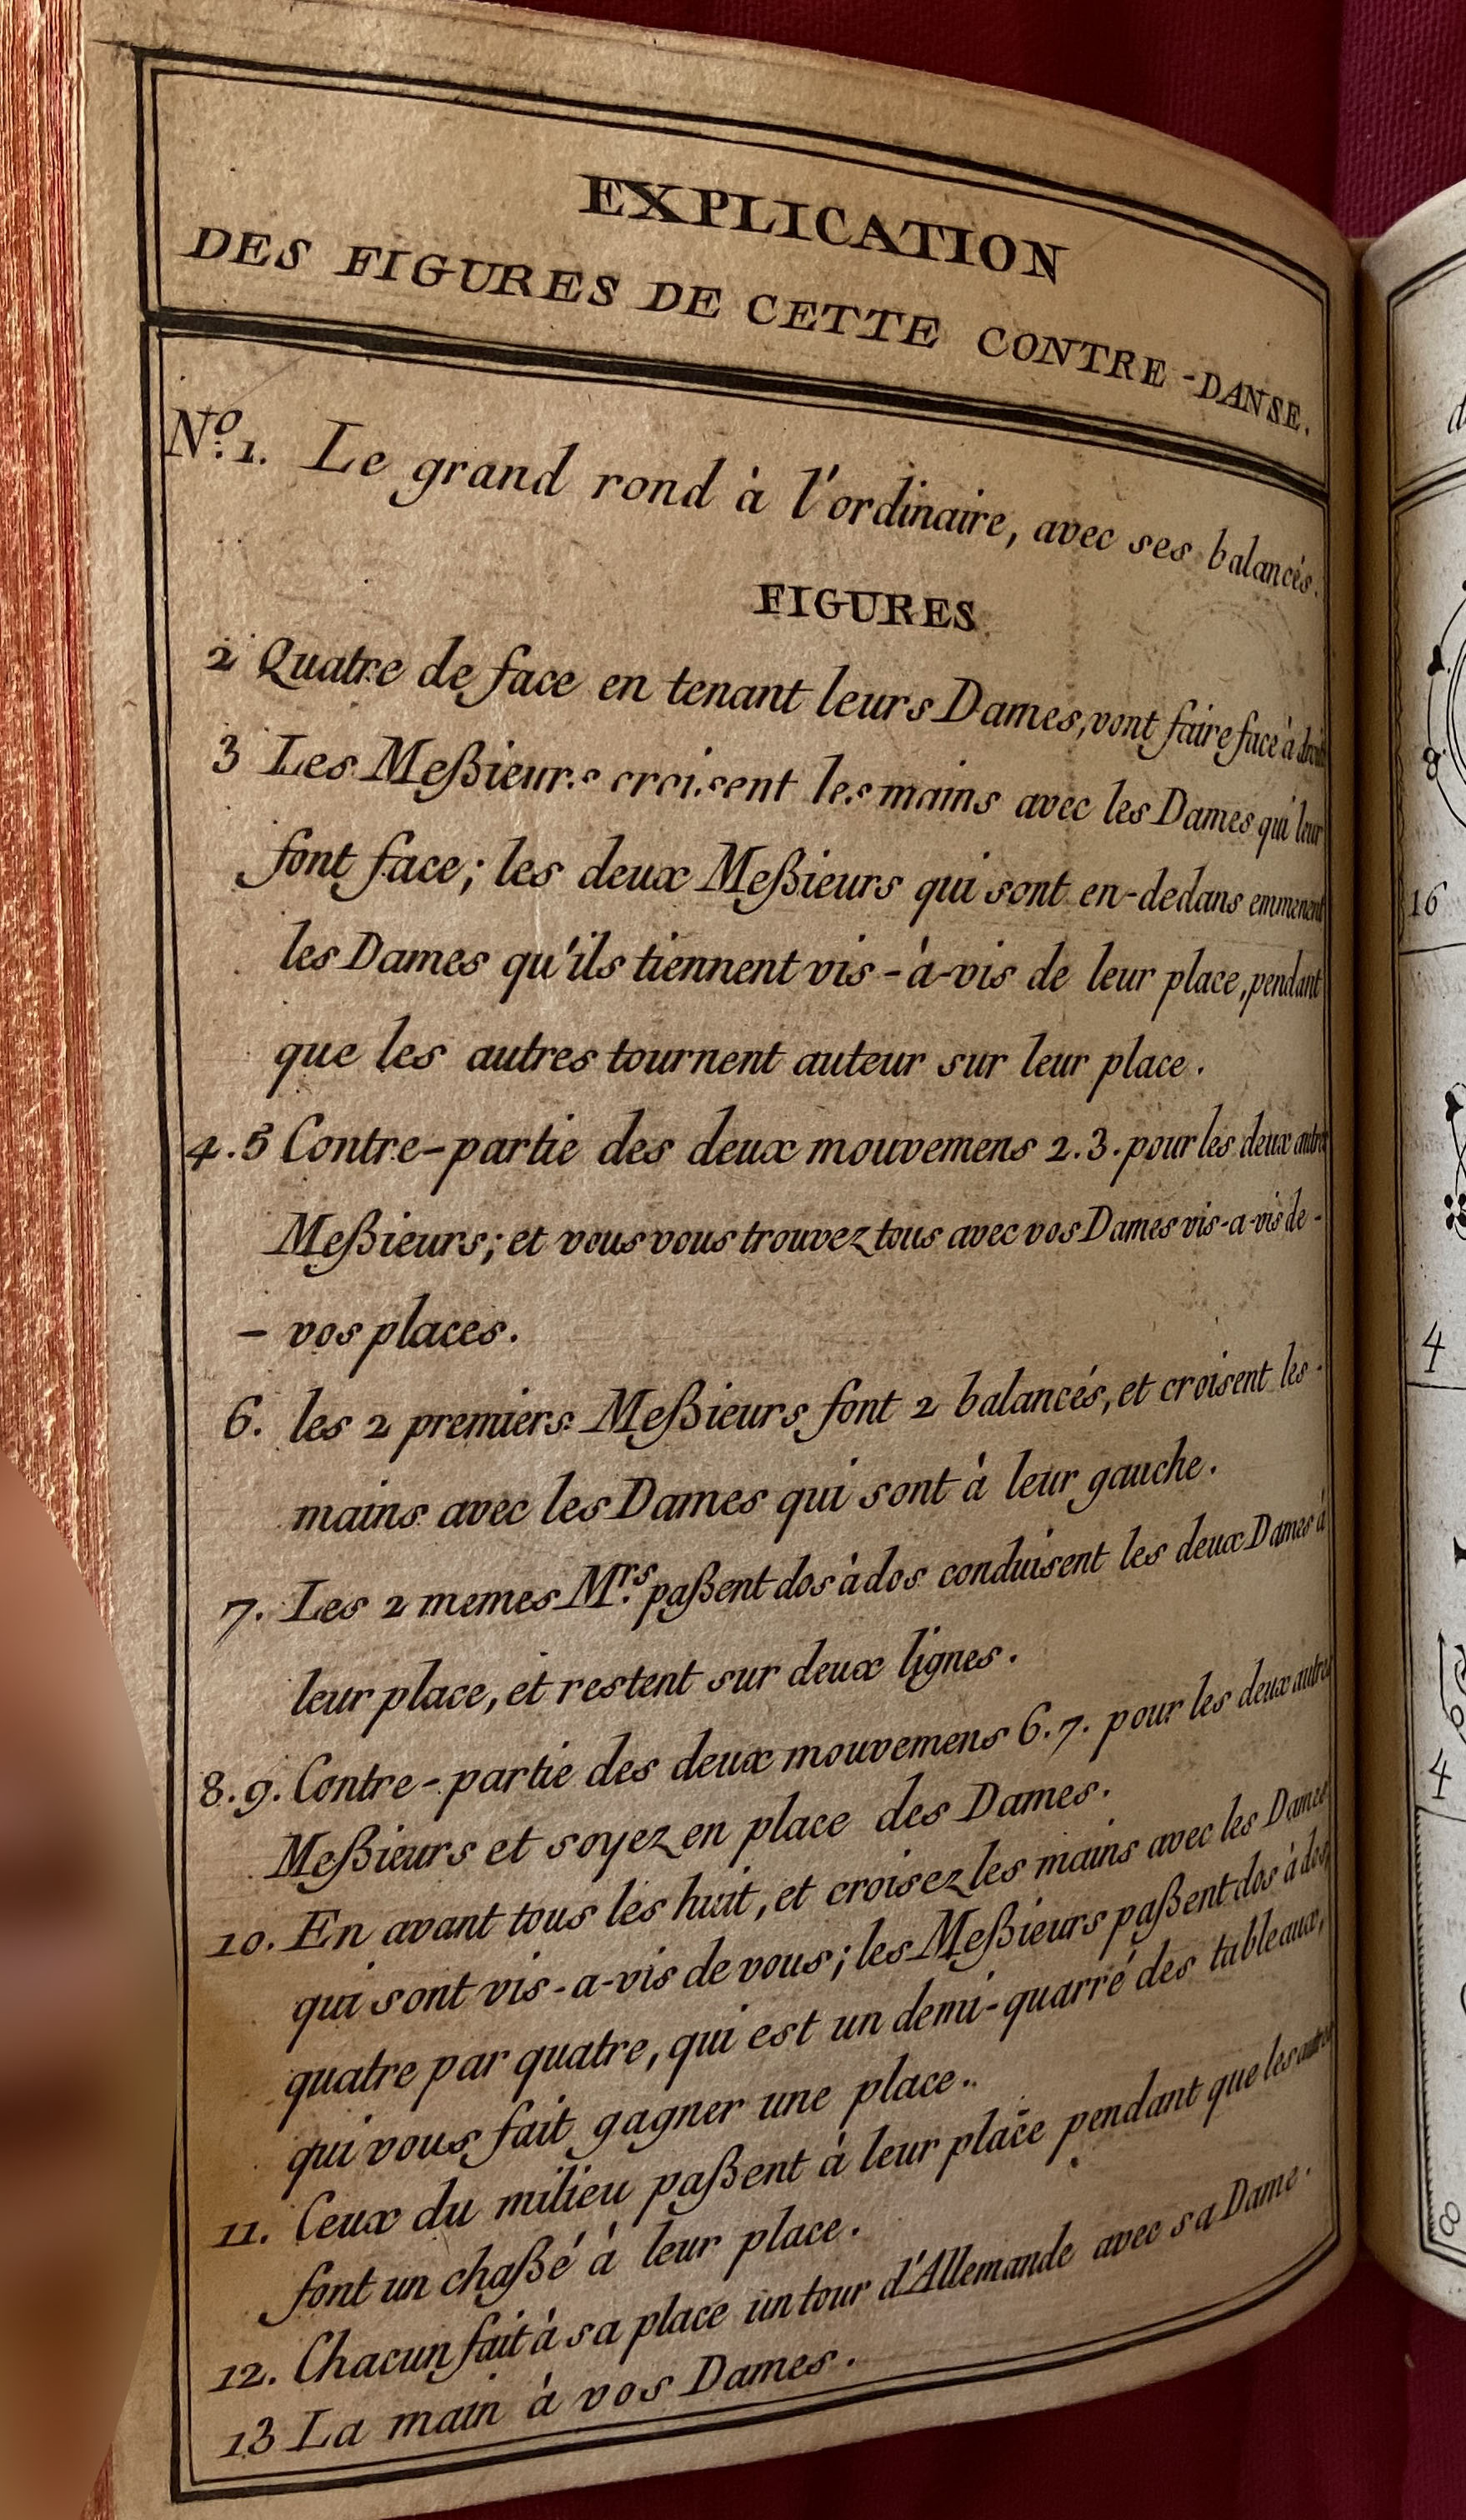 EXPLICATION
DES FIGURES DE CETTE CONTRE-DANSE.
No. 1. Le grand rond à l'ordinaire, avec ses balancés.
FIGURES
2 Quatre de face en tenant leurs Dames, vont faire face à droite
3 Les Meßieurs croisent les mains avec les Dames qui leur
font face; les deux Meßieurs qui sont en-dedans emmenent
les Dames qu'ils tiennent vis-à-vis de leur place, pendant
que les autres tournent auteur sur leur place.
4.5 Contre-partie des deux mouvemens 2.3. pour les deux autres
Meßieurs; et vous vous trouvez tous avec vos Dames vis-a-vis de -
- vos places.
6. les 2 premiers Meßieurs font 2 balancés, et croisent les -
mains avec les Dames qui sont à leur gauche.
7. Les 2 memes Mrs. paßent dos à dos conduisent les deux Dames à
leur place, et restent sur deux lignes.
8.9. Contre-partie des deux mouvemens 6.7. pour les deux autres
Meßieurs et soyez en place des Dames.
10. En avant tous les huit, et croisez les mains avec les Dames
qui sont vis-a-vis de vous; les Meßieurs paßent dos à dos
quatre par quatre, qui est un demi-quarré des tableaux,
qui vous fait gagner une place.
11. Ceux du milieu paßent à leur place pendant que les autres
font un chaßé à leur place.
12. Chacun fait à sa place un tour d'Allemande avec sa Dame.
13 La main à vos Dames.
16
4
4
8